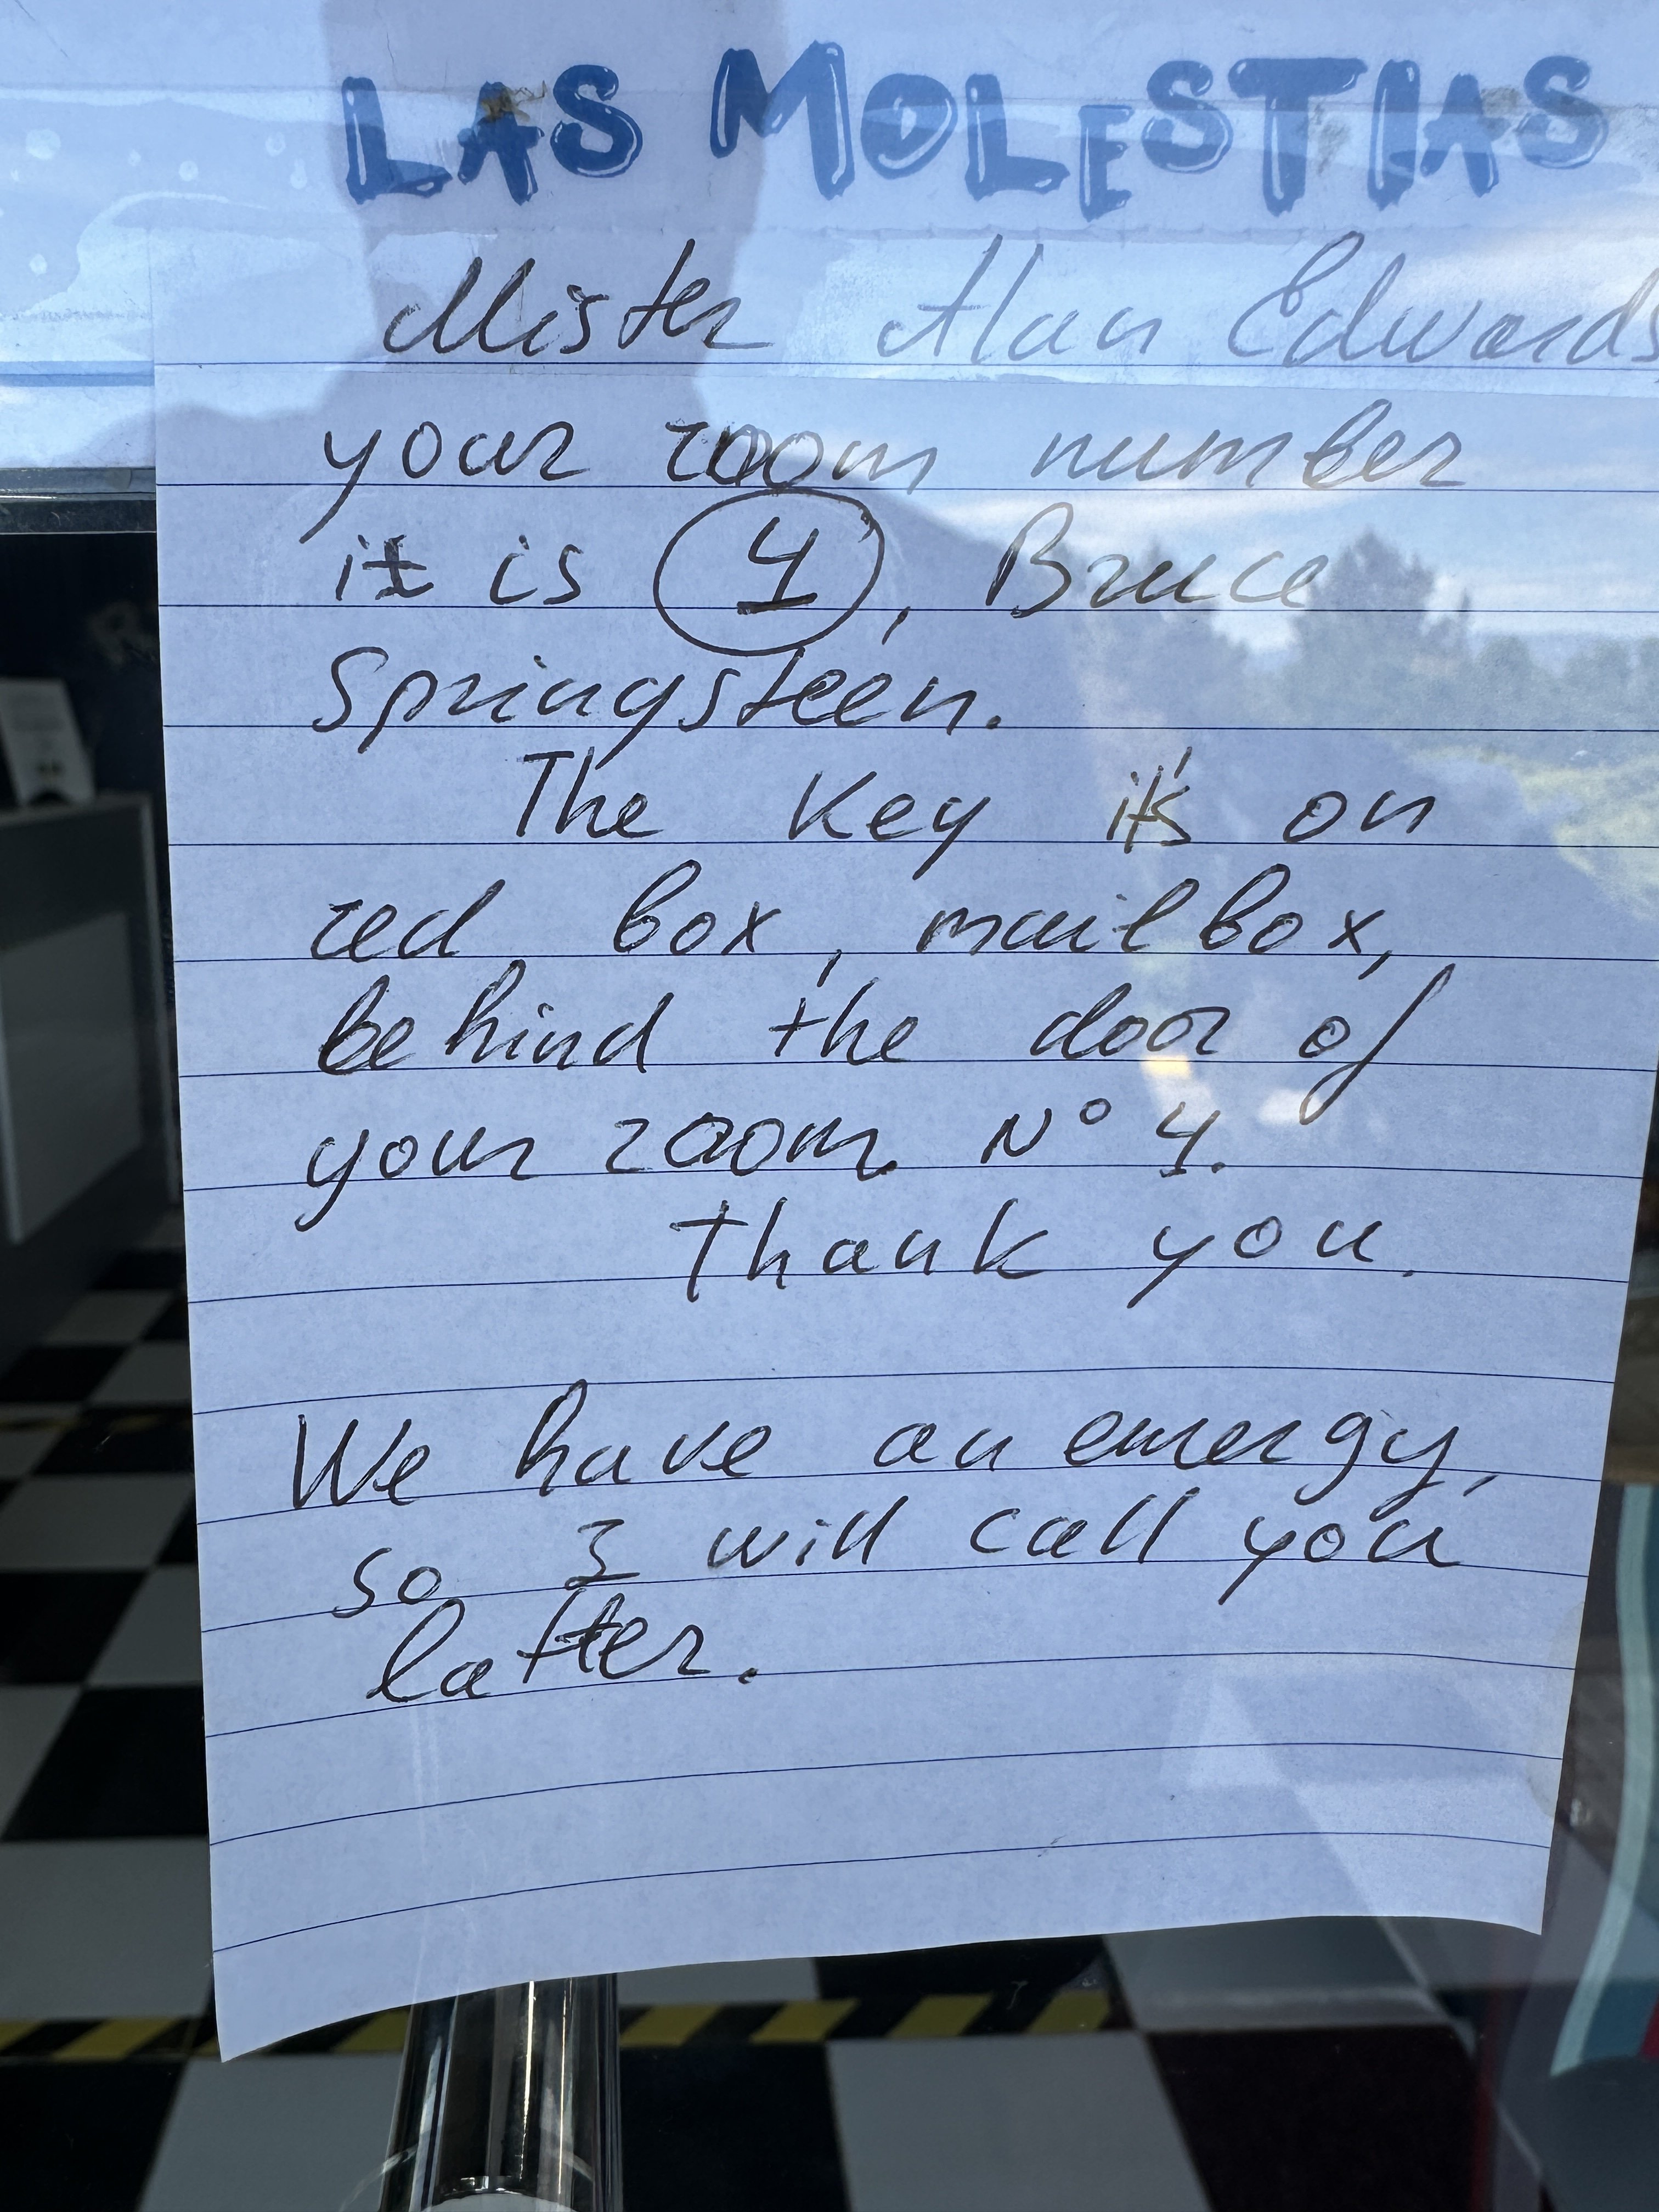 LAS MOLESTIAS
Mister Alan Edwards
your room number
it is 4, Bruce
Springsteen.
The key it's on
red box, mailbox,
behind the door of
your room Nº 4.
Thank you.
We have an emergy,
so I will call you
latter.